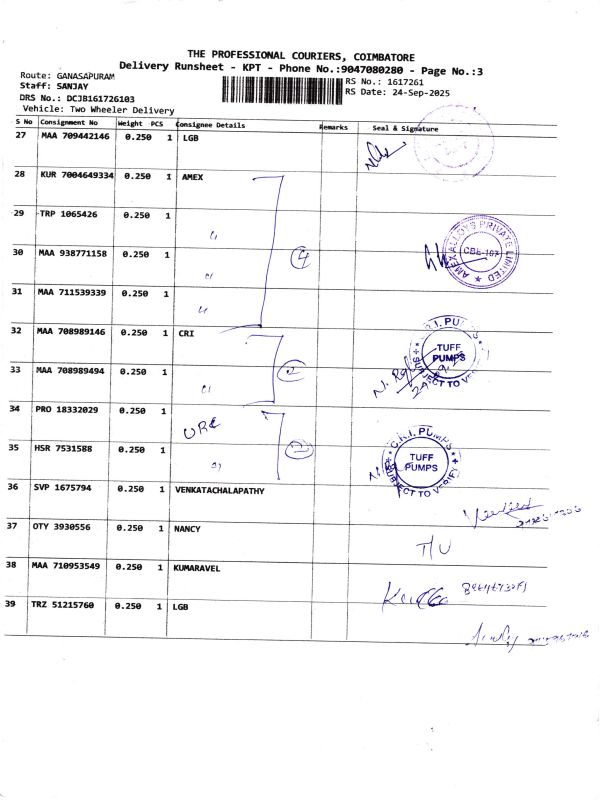 THE PROFESSIONAL COURIERS, COIMBATORE
Delivery Runsheet - KPT - Phone No.:9047080280 - Page No.:3
Route: GANASAPURAM
RS No.: 1617261
Staff: SANJAY
RS Date: 24-Sep-2025
DRS No.: DCJB161726103
Vehicle: Two Wheeler Delivery
S No Consignment No Weight PCS Consignee Details Remarks Seal & Signature
27 MAA 709442146 0.250 1 LGB
28 KUR 7004649334 0.250 1 AMEX
29 TRP 1065426 0.250 1 "
30 MAA 938771158 0.250 1 " 4
AMEX ALLOYS PRIVATE LIMITED ★ CBE-107
31 MAA 711539339 0.250 1 "
32 MAA 708989146 0.250 1 CRI
C.R.I. PUMPS TUFF PUMPS SUBJECT TO VERIFY
33 MAA 708989494 0.250 1 " 2
34 PRO 18332029 0.250 1 URC
35 HSR 7531588 0.250 1 " 2
C.R.I. PUMPS TUFF PUMPS SUBJECT TO VERIFY
36 SVP 1675794 0.250 1 VENKATACHALAPATHY
37 OTY 3930556 0.250 1 NANCY
T/U
38 MAA 710953549 0.250 1 KUMARAVEL
39 TRZ 51215760 0.250 1 LGB